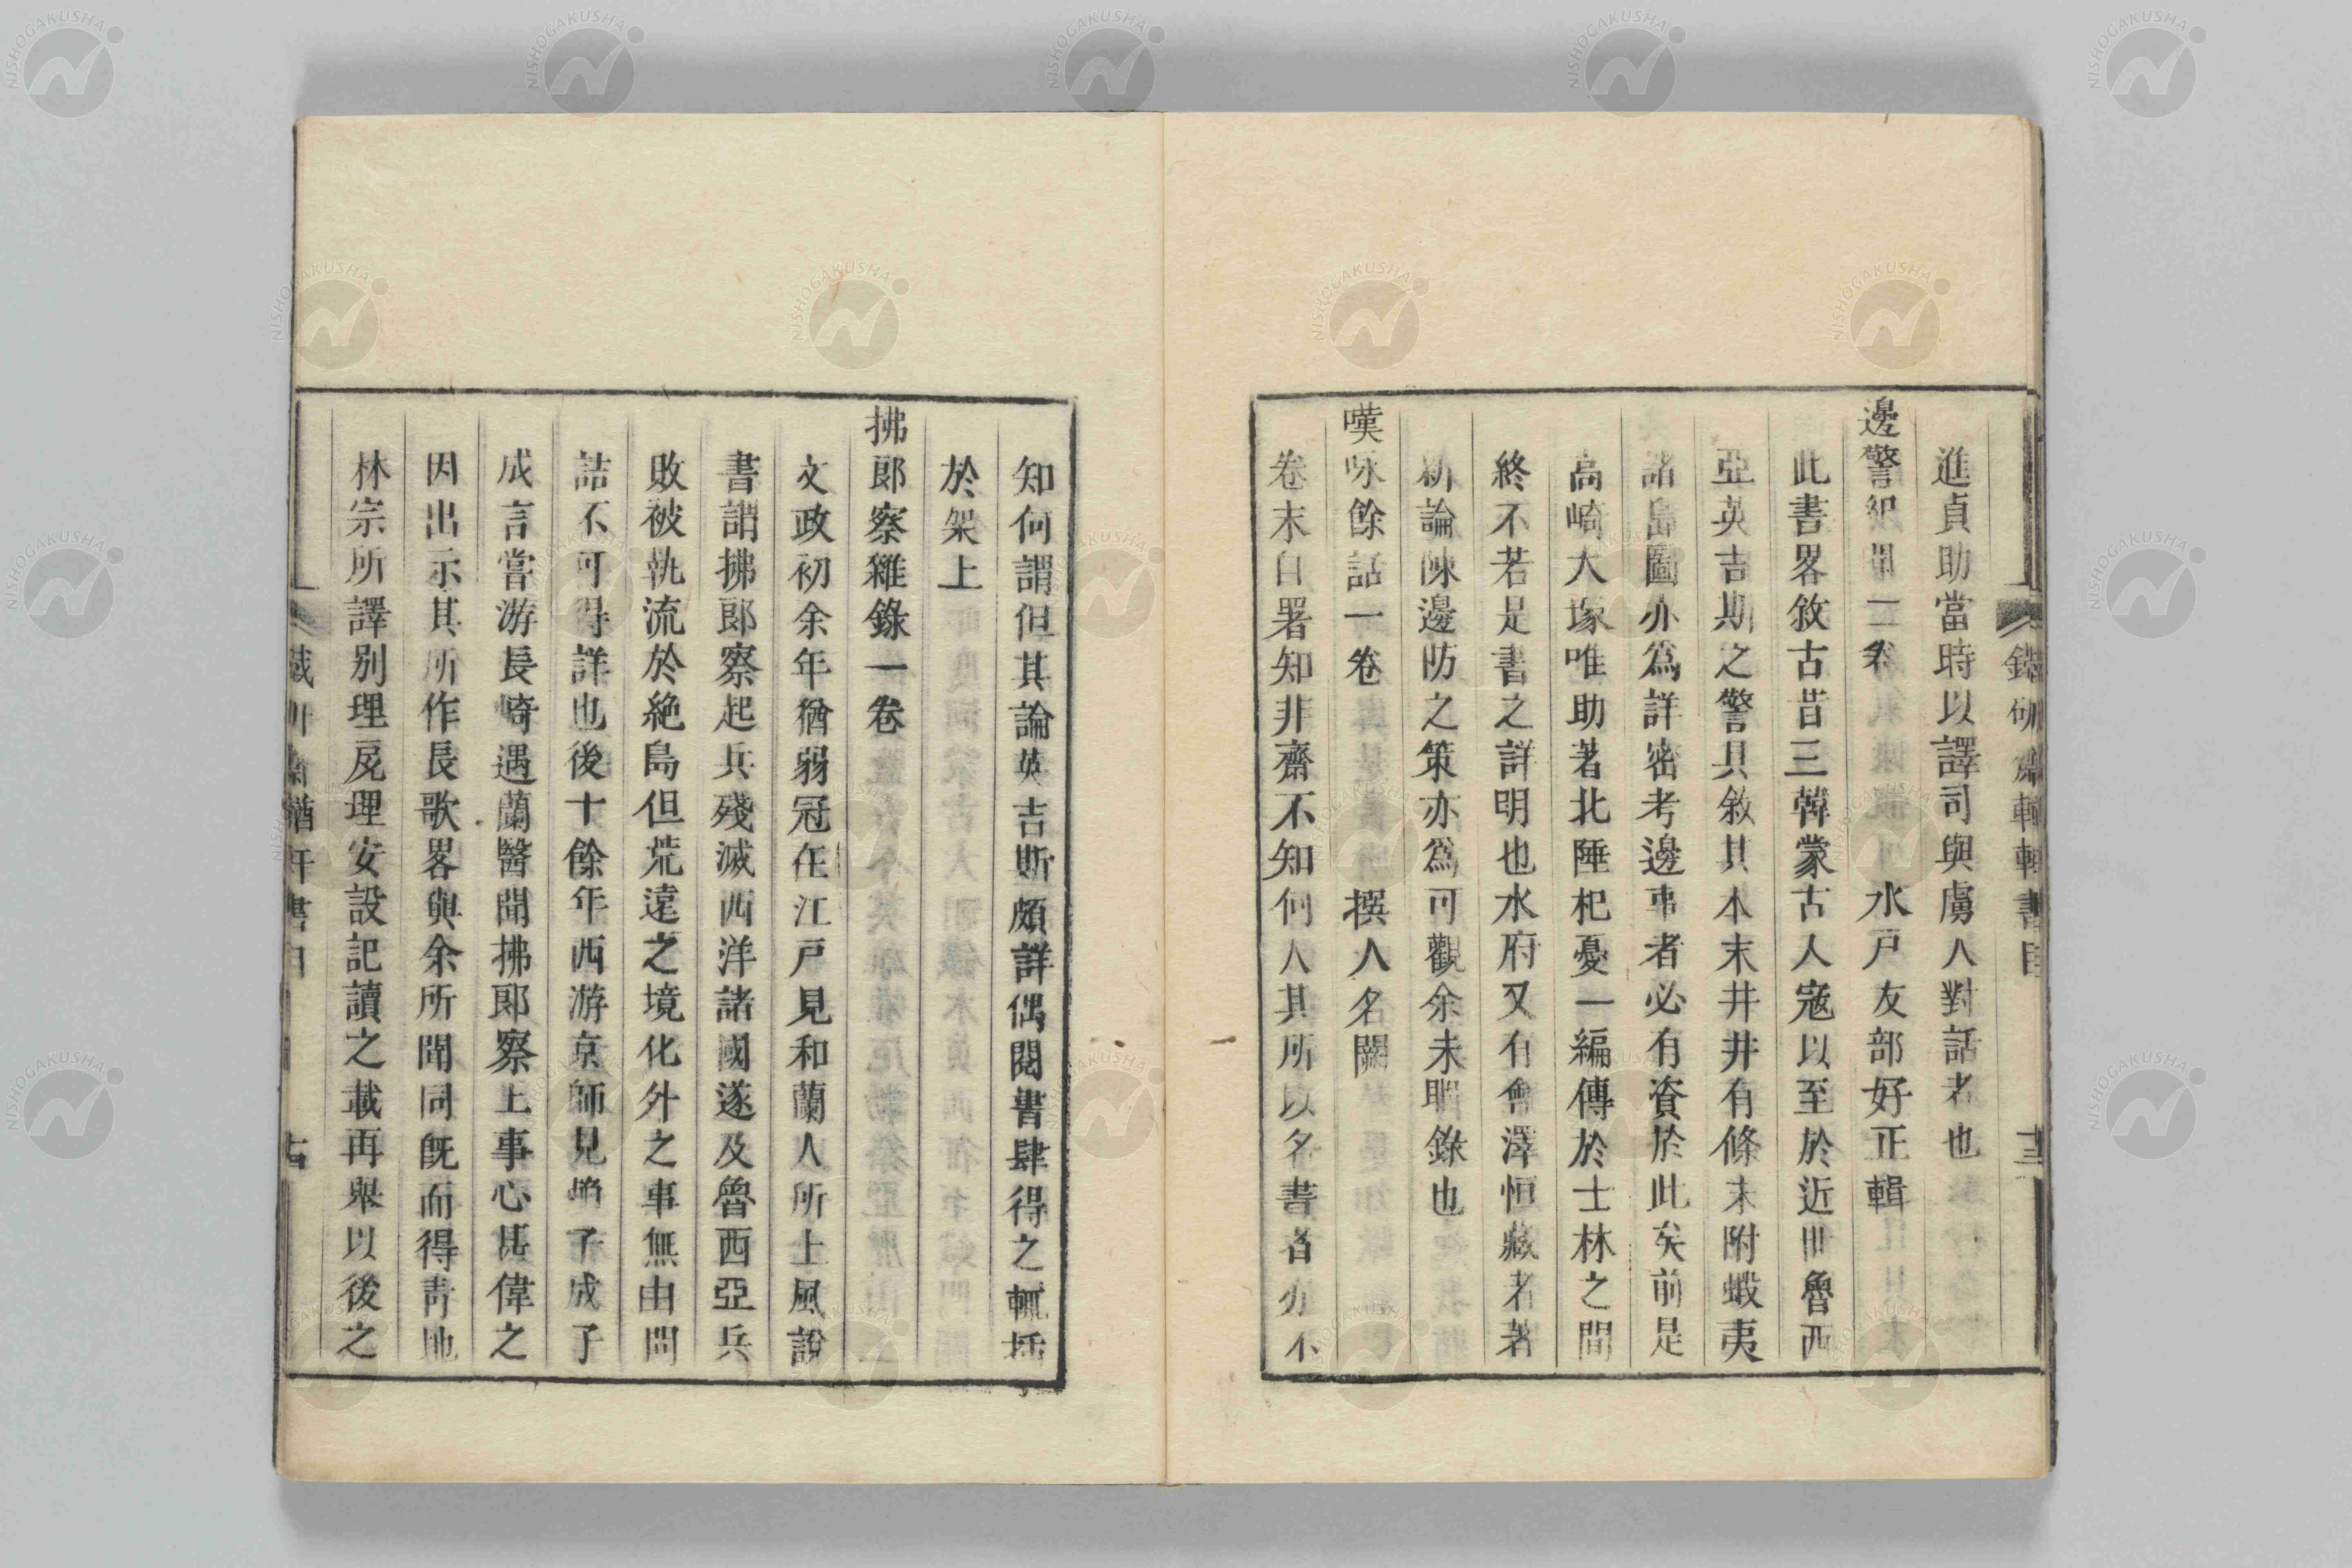 進貞助當時以譯司與虜人對話者也
邊警紀聞二卷 水戸友部好正輯
此書畧敘古昔三韓蒙古人寇以至於近世魯西
亞英吉期之警具敘其本末井井有條末附蝦夷
諸島圖亦爲詳密考邊事者必有資於此矣前是
高崎大塚唯助著北陲杞憂一編傳於士林之間
終不若是書之詳明也水府又有會澤恒藏者著
新論陳邊防之策亦爲可觀余未聞錄也
嘆咏餘話一卷 撰人名闕
卷末自署知非齋不知何人其所以名書者亦不
知何謂但其論英吉斯頗詳偶閱書肆得之輒插
於架上
拂郎察雜錄一卷
文政初余年猶弱冠在江戸見和蘭人所上風說
書謂拂郎察起兵殘滅西洋諸國遂及魯西亞兵
敗被執流於絕島但荒遠之境化外之事無由問
詰不可得詳也後十餘年西游京師見子成子
成言嘗游長崎遇蘭醫聞拂郎察上事心甚偉之
因出示其所作長歌畧與余所聞同旣而得靑地
林宗所譯別理戹理安設記讀之載再舉以後之
NISHOGAKUSHA